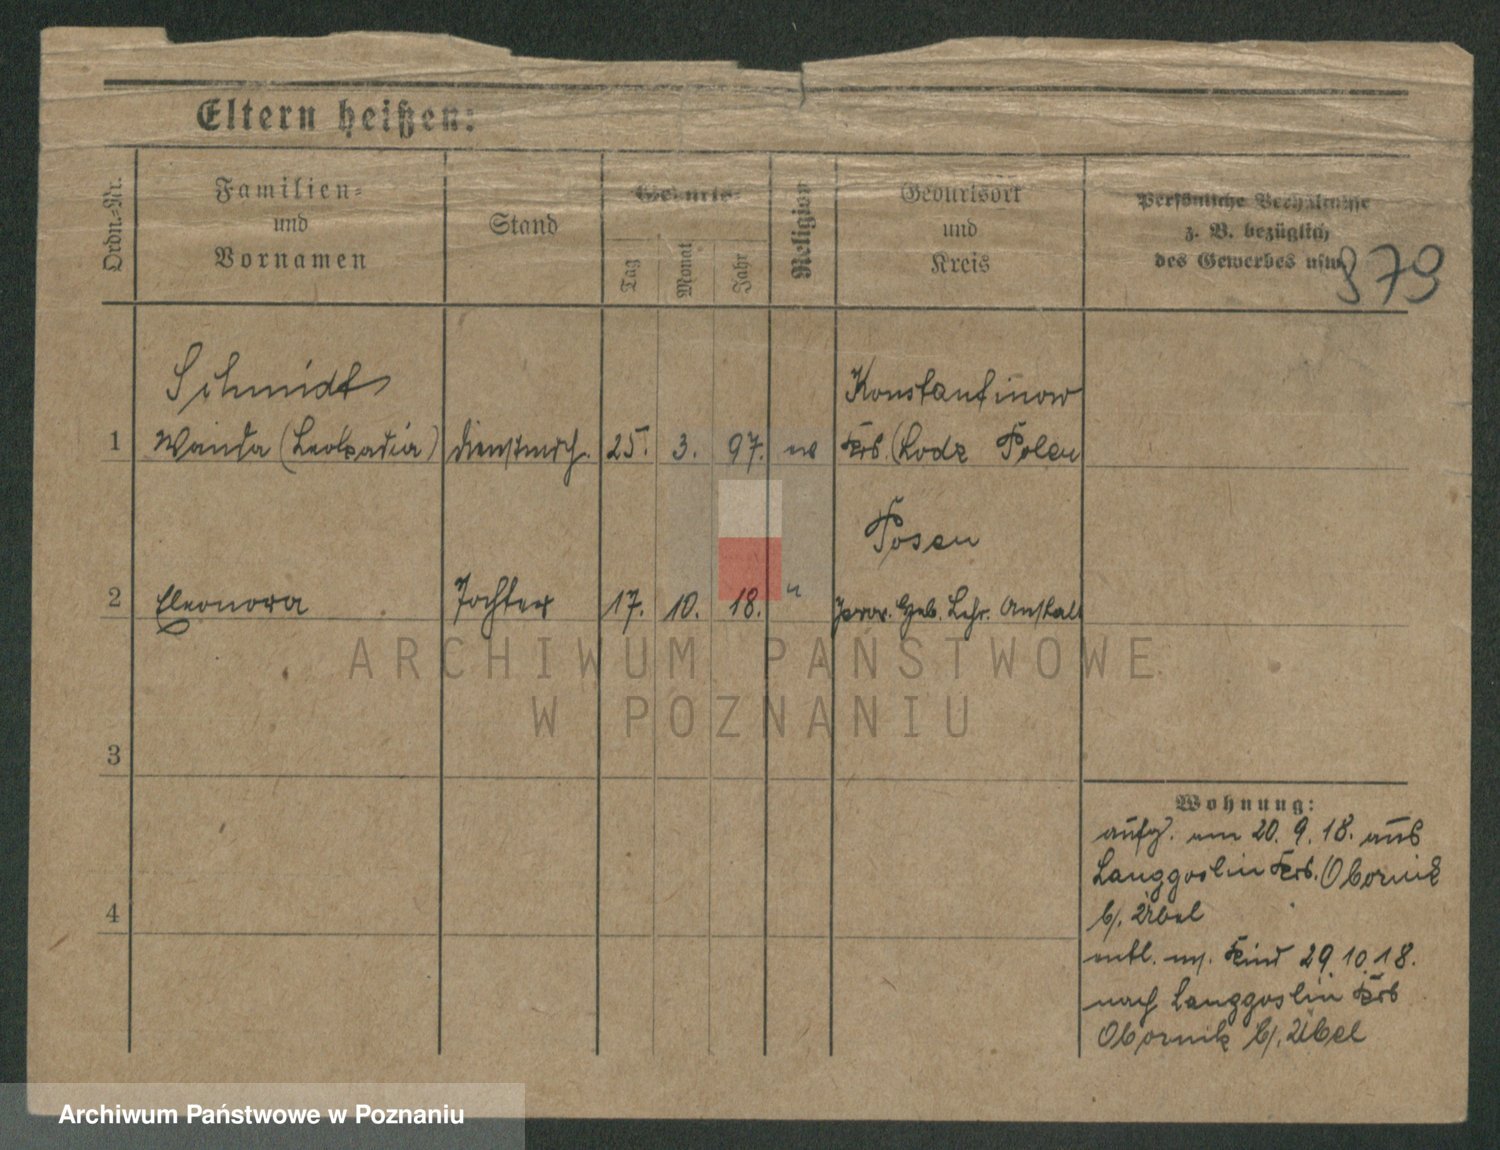 Eltern heißen:
Ordn.-Nr.
Familien-
und
Vornamen
Stand
Geburts-
Tag
Monat
Jahr
Religion
Geburtsort
und
Kreis
Persönliche Verhältnisse
z. B. bezüglich
des Gewerbes usw.
879
Schmidt
Konstantinow
1 Wanda (Leokadia) Dienstmdch. 25. 3. 97. ev Krs. Lodz Polen
Posen
2 Eleonora Tochter 17. 10. 18. " prov. Geb. Lehr. Anstalt
ARCHIWUM PAŃSTWOWE
W POZNANIU
3
Wohnung:
aufg. am 20. 9. 18. aus
Langgoslin Krs. Obornik
4
b/. Übel
entl. m. Kind 29.10.18.
nach Langgoslin Krs
Obornik b/. Übel
Archiwum Państwowe w Poznaniu